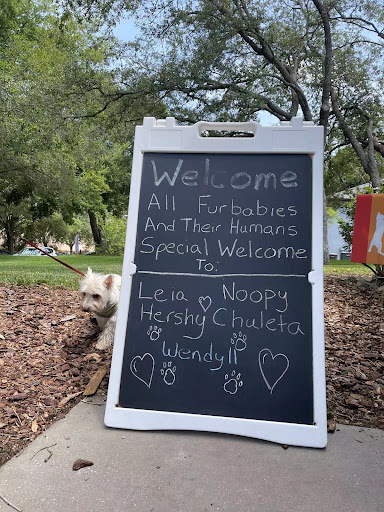 Welcome
All Furbabies
And Their Humans
Special Welcome
To:
Leia Noopy
Hershy Chuleta
Wendyll